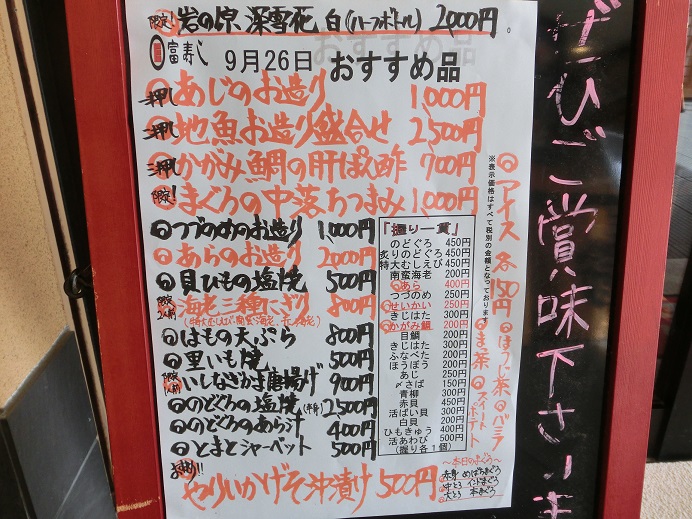 限定! 岩の原 深雪花 白(ハーフボトル) 2,000円。
富寿し 9月26日 おすすめ品
一押し あじのお造り 1,000円
二押し 地魚お造り盛合せ 2,500円
三押し かがみ鯛の肝ぽん酢 700円
限定! まぐろの中落ちつまみ 1,000円
つづのめのお造り 1,000円
あらのお造り 2,000円
貝ひもの塩焼 500円
海老三種にぎり 800円
はもの天ぷら 800円
里いも焼 500円
いしなぎかま唐揚げ 900円
のどぐろの塩焼(半身) 2,500円
のどぐろのあら汁 400円
とまとシャーベット 500円
やりいかげそ沖漬け 500円
「握り一貫」
のどぐろ 450円
炙りのどぐろ 450円
特大むしえび 450円
南蛮海老 200円
あら 400円
つづのめ 250円
せいかい 250円
きじはた 300円
かがみ鯛 200円
目鯛 200円
きじはた 300円
ふなべた 200円
ほうぼう 200円
あじ 250円
〆さば 150円
青柳 300円
赤貝 450円
活ばい貝 300円
白貝 200円
ひもきゅう 400円
活あわび 500円
(握り各1個)
~本日のまぐろ~
赤身 めばちまぐろ
中とろ インドまぐろ
大とろ 本まぐろ
※表示価格はすべて税別の金額となっております。
アイス 各150円
ほうじ茶 バニラ
ま茶 スイートポテト
ぜひご賞味下さいま